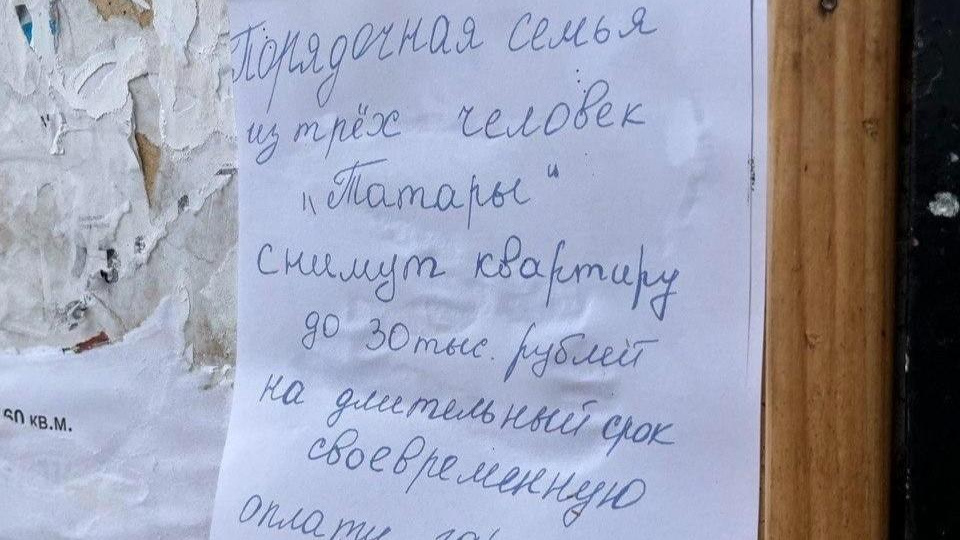 Порядочная семья
из трёх человек
„Татары“
снимут квартиру
до 30 тыс. рублей
на длительный срок
своевременную
оплату
60 кв.м.